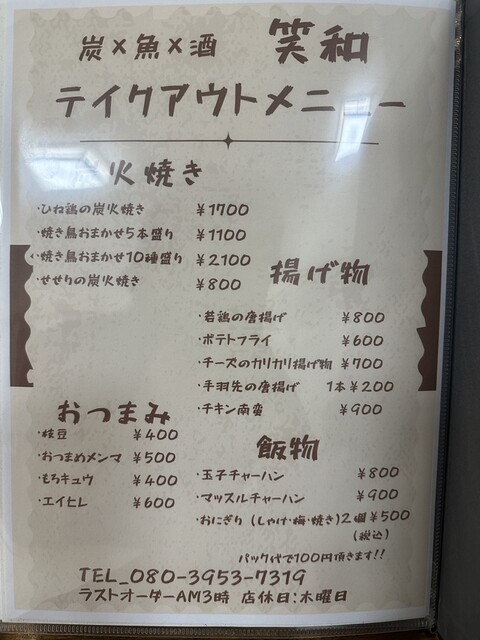 炭×魚×酒 笑和
テイクアウトメニュー
火焼き
・ひね鶏の炭火焼き ¥1700
・焼き鳥おまかせ5本盛り ¥1100
・焼き鳥おまかせ10種盛り ¥2100
・せせりの炭火焼き ¥800
揚げ物
・若鶏の唐揚げ ¥800
・ポテトフライ ¥600
・チーズのカリカリ揚げ物 ¥700
・手羽先の唐揚げ 1本¥200
・チキン南蛮 ¥900
おつまみ
・枝豆 ¥400
・おつまめメンマ ¥500
・もろキュウ ¥400
・エイヒレ ¥600
飯物
・玉子チャーハン ¥800
・マッスルチャーハン ¥900
・おにぎり(しゃけ・梅・焼き)2個¥500
(税込)
パック代で100円頂きます!!
TEL_080-3953-7319
ラストオーダーAM3時 店休日:木曜日